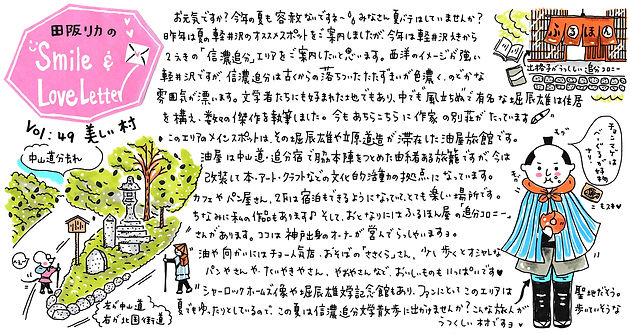 田阪リカの
Smile &
Love Letter
Vol:49 美しい村
お元気ですか？今年の夏も容赦ないですネ〜。みなさん夏バテはしていませんか？
昨年は夏の軽井沢のオススメスポットをご案内しましたが、今年は軽井沢えきから
2えきの「信濃追分」エリアをご案内したいと思います。西洋のイメージが強い
軽井沢ですが、信濃追分は古くからの落ちついたたたずまいが色濃く、のどかな
雰囲気が漂います。文学者たちにも好まれた土地でもあり、中でも"風立ちぬ"で有名な堀辰雄は住居
を構え、数々の傑作を執筆しました。今もあちらこちらに作家の別荘がたっています
このエリアのメインスポットは、その堀辰雄や立原道造が滞在した油屋旅館です。
油屋は中山道・追分宿で脇本陣をつとめた由緒ある旅籠ですが今は
改装して本・アート・クラフトなどの文化的活動の拠点になっています。
カフェやパン屋さん、2Fは宿泊もできるようになっていて、とても楽しい場所です。
ちなみに私の作品もあります♪そして、おとなりにはふるほん屋の追分コロニー
さんがあります。ココは神戸出身のオーナーが営んでらっしゃいます。
油や向かいにはチョー人気店、おそばの「ささくら」さん、少し歩くとオシャレな
パンやさんや、たいやきやさん、やおやさんなど、おいしいものもいっぱいです♥
シャーロックホームズ像や堀辰雄文学記念館もあり、ファンにとってこのエリアは
聖地だそう。
夏でもゆったりとしているので、この夏は信濃追分文学散歩に出かけませんか？こんな旅人が
歩っていそうな
うつくしい村です。
中山道分去れ
左が中山道
右が北国街道
ふるほん
出格子がうつくしい追分コロニー